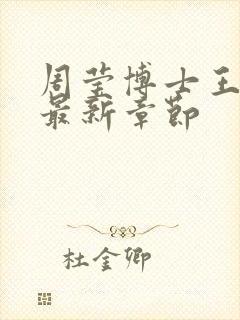 周莹博士王
最新章节
杜金卿